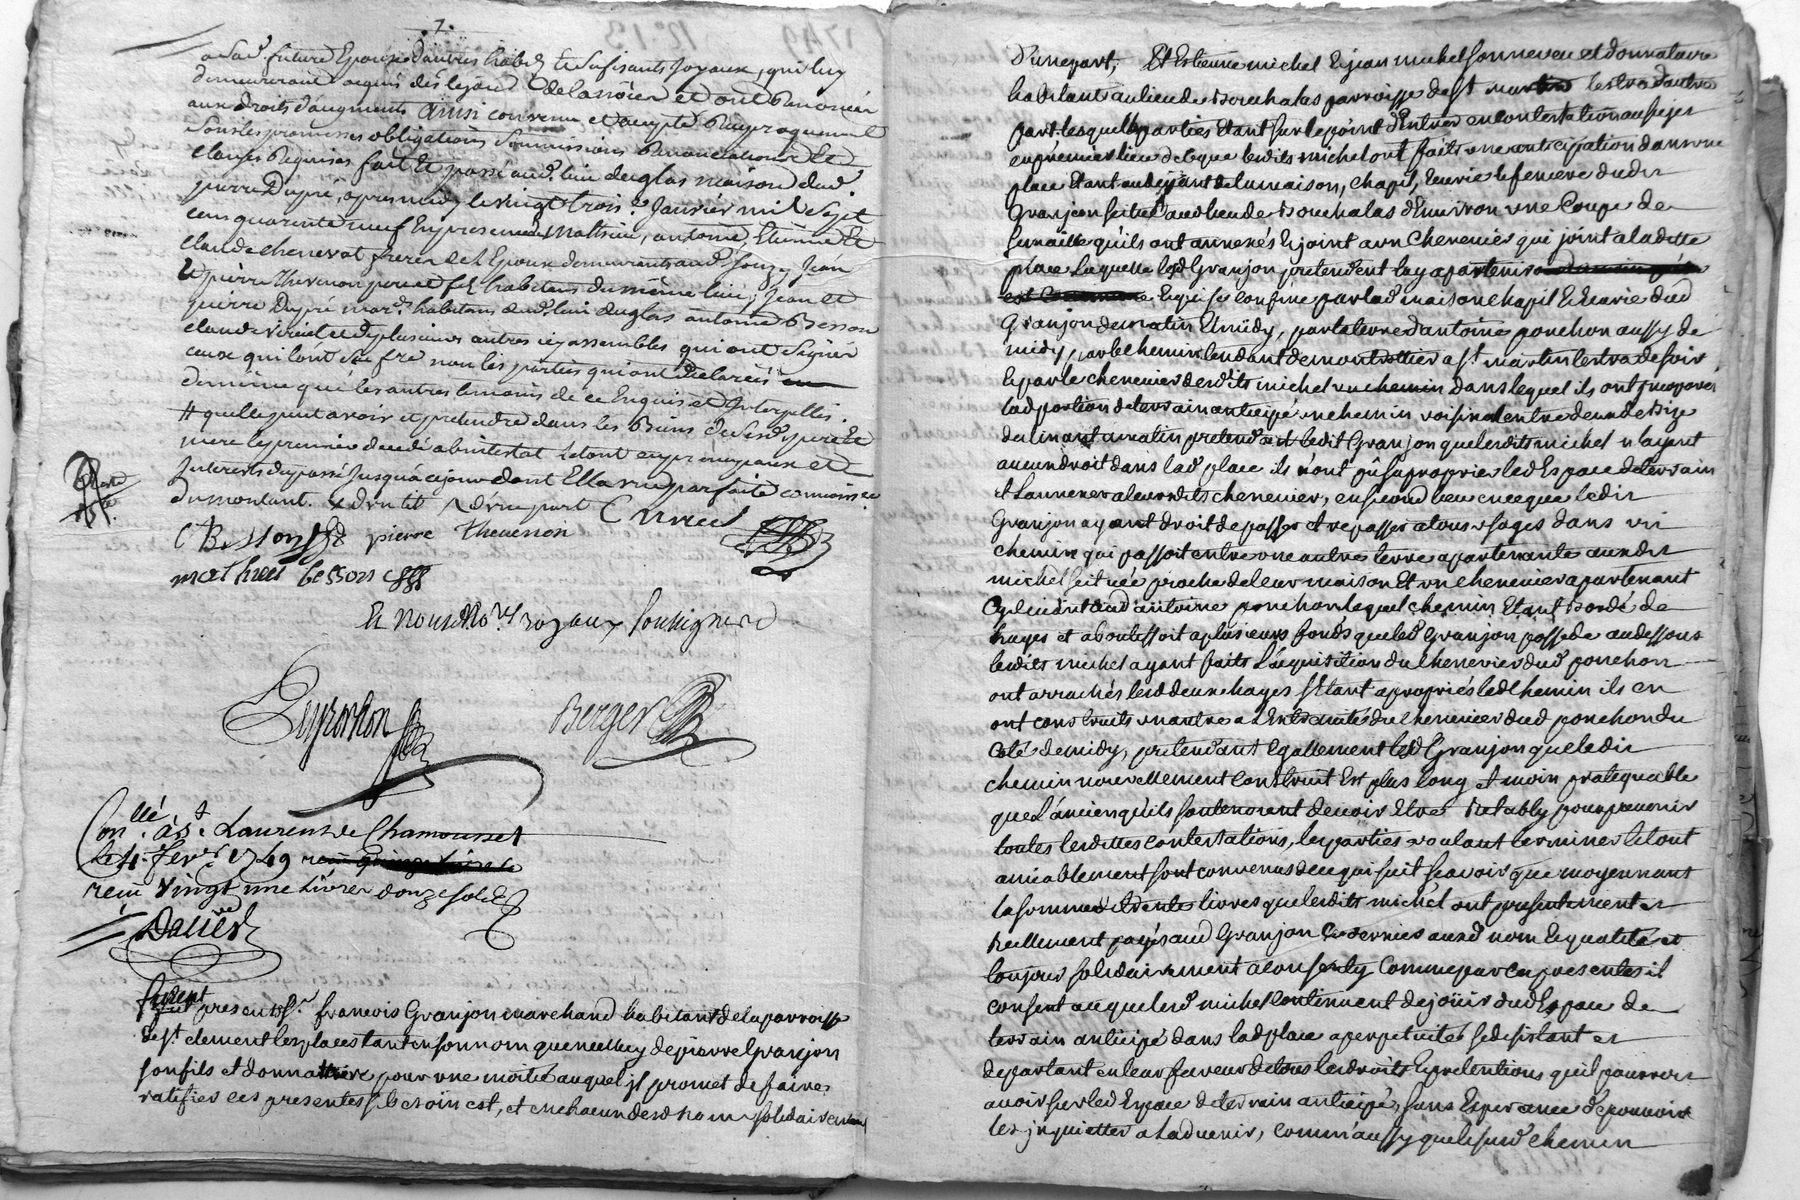 7.
a Sad. future Epouse d'autres habits et Sufisants Joyaux, qui luy
demeureront acquis dès lejourd de la nôce et ont Renoncér
aux droits d'augments ainsi convenu et accepté Reciproquement
Sous les promesses obligations Soumissions Renonciations et
clauses Requises fait et passé aud. lieu duglas maison dud.
pierre Dupré, apres midy le vingt trois e. Janvier mil Sept
cens quarente neuf En presence de Mathieu, antoine, Etienne et
claude chenevat freres de l'Epoux demeurants aud. Souzy Jean
et pierre Thevenon pere et fils habitans du même lieu, Jean et
pierre Dupré mar.ds habitans dud. lieu duglas antoine Besson
claude viricel et de plusieurs autres icy assemblés qui ont Signér
ceux qui l'ont Sçu fre non les parties qui ont Declarées
de même que les autres temoins de ce Enquis et Interpellés.
# quelle peut avoir et pretendre dans les Biens de Sesd. pere et
mere le premier decedé abintestat Letout en principaux et
Interests du passé Jusqu'a cejour dont Ella eu parfaite connoissce
du montant.
C Viricel
C Besson
pierre Thevenon
mathieu bessons
Et Nous No.res royaux Soussignérs
Peyrochon
Berger
Con.llé à S.t Laurent de Chamousset
le 4 fev.er 1749
reçu vingt une Livres douze sols
Dalier
furent
present S.r francois Granjon marchand habitant de la parroisse
de S.t clement les places tant en son nom que de celluy de pierre Granjon
son fils et donnattaire pour une moitié auquel il promet de faire
ratifier ces presentes si besoin est, et en chacun desd. noms solidairement
D'une part, Et Estienne michel Et jean michel son neveu et donnataire
habitants au lieu de Bouchalas parroisse de S.t martin lestra d'autre
part lesquelles parties Etant sur le point d'Entrer en contestation au sujet
en premier lieu de ce que lesdits michel ont faits une anticipation dans une
place Etant au devant de la maison, chapit, Ecurie et feniere dudit
Granjon scituée aud. lieu de Bouchalas d'Environ une Coupe de
Semaille qu'ils ont annexés Et joint a un Chenevier qui joint a ladite
place Laquelle led. Granjon pretendent luy apartenir
Et qui se confine par lad. maison chapit Et Ecurie dud.
Granjon de matin Et midy, par la terre d'antoine ponchon aussy de
midy, par le chemin tendant de montrottier a S.t martin lestra de soir
Et par le chenevier desdits michel un chemin dans lequel ils ont incorporé
lad. portion de terrain anticipé un chemin voisinal entre deux de Bize
declinant a matin pretend led. Granjon que lesdits michel n'ayant
aucun droit dans lad. place ils n'ont pû s'aproprier led. Espace de terrain
et L'annexer a leursdits chenevier, en second lieu en ce que ledit
Granjon ayant droit de passer et repasser a tous usages dans un
chemin qui passoit entre une autre terre apartenante auxdits
michel scituée proche de leur maison Et un chenevier apartenant
cydevant aud. antoine ponchon lequel chemin Etant Bordé de
hayes et aboutissoit a plusieurs fonds que led. Granjon possede au dessous
lesdits michel ayant faits l'acquisition du chenevier dud. ponchon
ont arrachés lesd. deux hayes S'Etant apropriés led. chemin ils en
ont construits un autre a l'Extremité du chenevier dud. ponchon du
coté de midy, pretendant Egallement led. Granjon que ledit
chemin nouvellement Construit Est plus long et moin pratiquable
que L'ancien qu'ils soutenoient devoir Etre Retably pour prevenir
toutes lesdittes Contestations, les parties voulant terminer le tout
amiablement sont convenus de ce qui suit scavoir que moyennant
la somme de trente livres que lesdits michel ont presentement et
Reellement payés aud. Granjon Ce dernier auxd. nom Et qualités et
toujours solidairement a Consenty Comme par ces presentes il
consent a ce que lesd. michel continuent de joüir dud. Espace de
terrain anticipé dans lad. place a perpetuité se desistant et
departant en leur faveur de tous les droits Et pretentions qu'il pourroit
avoir sur led. Espace de terrain anticipé, sans Esperance de pouvoir
les jnquietter a Ladvenir, comm'aussy que le susd. chemin